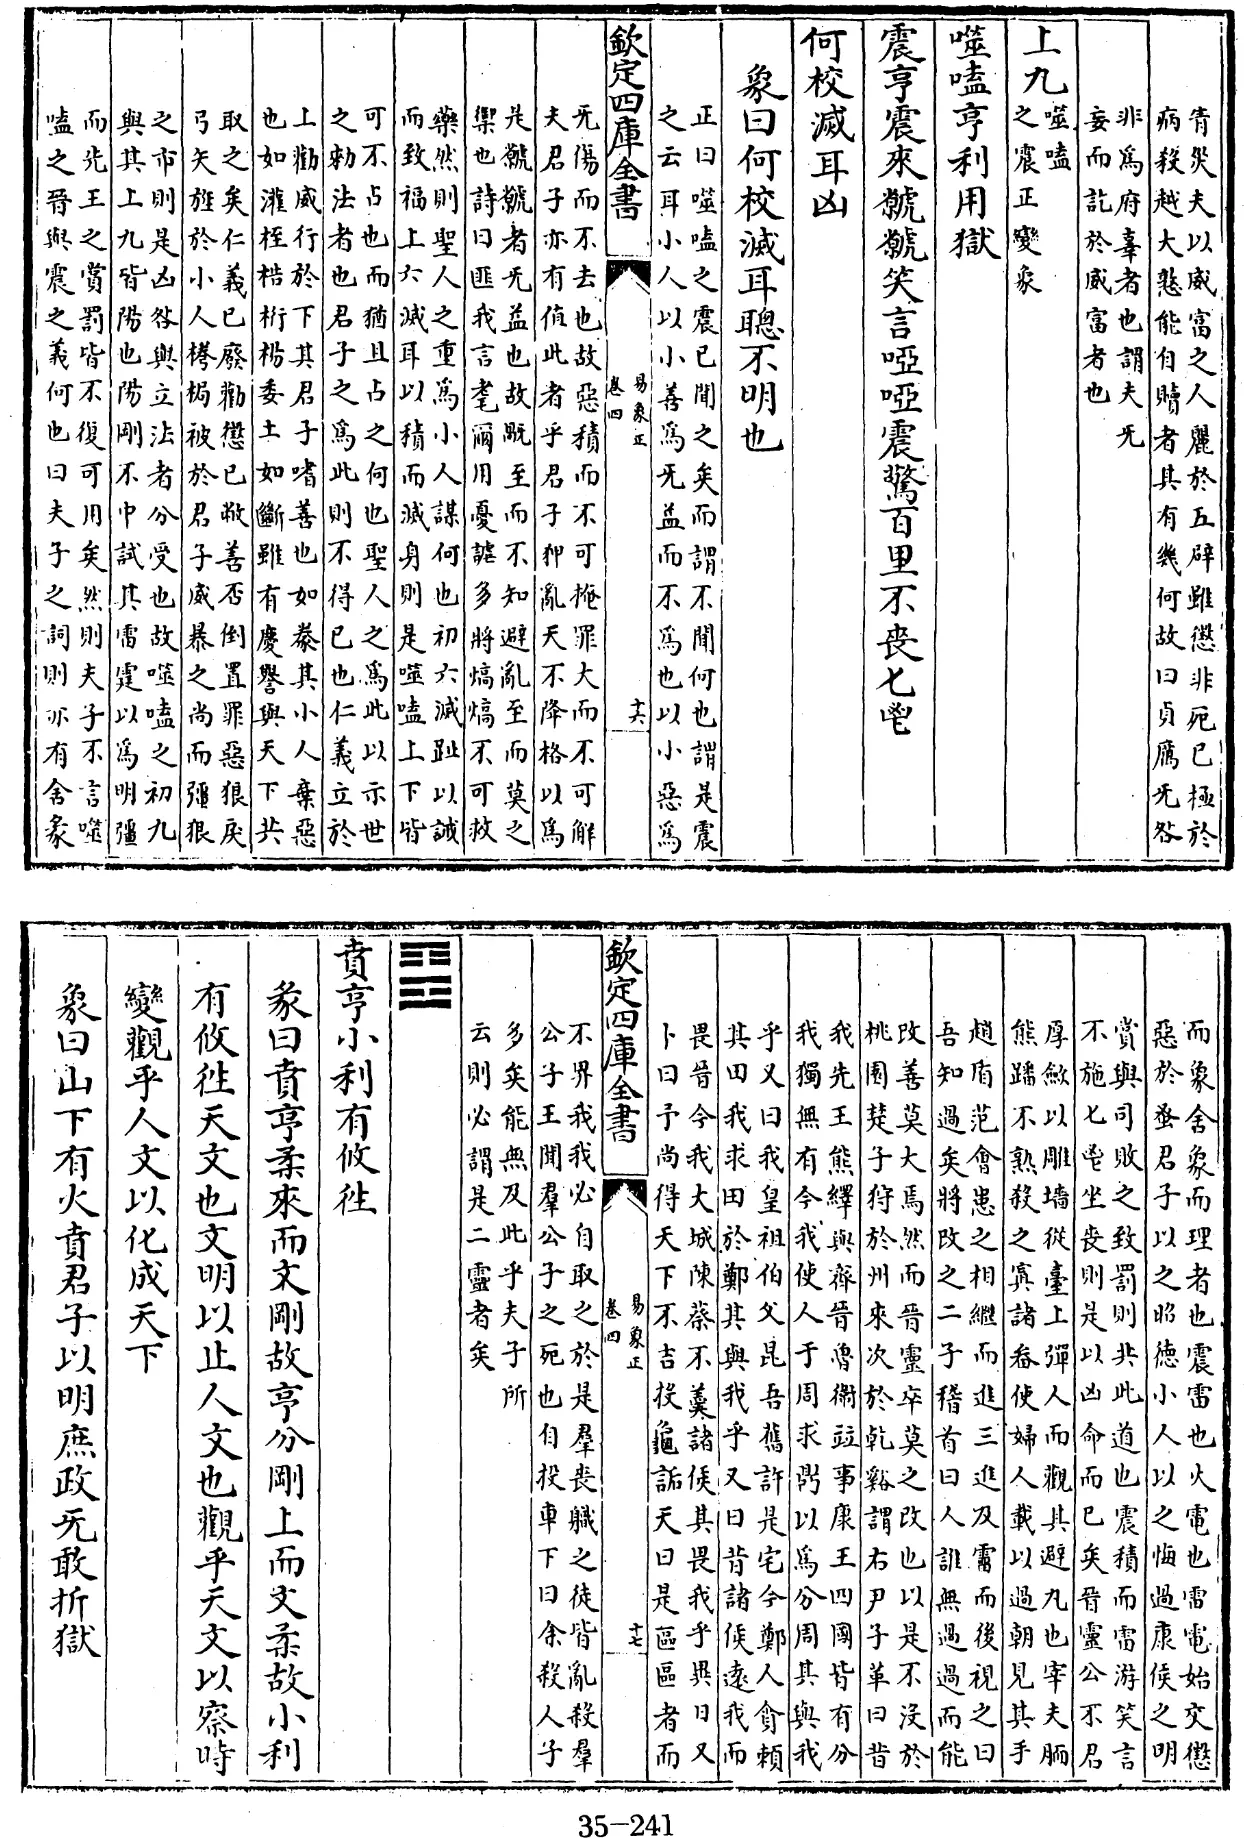 眚災夫以威富之人麗於五辟雖懲非死已極於
病殺越大憝能自贖者其有幾何故曰貞厲无咎
非爲府辜者也謂夫无
妄而訖於威富者也
上九噬嗑之震正變象
噬嗑亨利用獄
震亨震來虩虩笑言啞啞震驚百里不喪匕鬯
何校滅耳凶
象曰何校滅耳聰不明也
正曰噬嗑之震已聞之矣而謂不聞何也謂是震
之云耳小人以小善爲无益而不爲也以小惡爲
欽定四庫全書
易象正
卷四
十六
无傷而不去也故惡積而不可掩罪大而不可解
夫君子亦有值此者乎君子卹亂天不降格以爲
是虩虩者无益也故既至而不知避亂至而莫之
禦也詩曰匪我言耄爾用憂謔多將熇熇不可救
藥然則聖人之重爲小人謀何也初六滅趾以誡
而致福上六滅耳以積而滅身則是噬嗑上下皆
可不占也而猶且占之何也聖人之爲此以示世
之勅法者也君子之爲此則不得已也仁義立於
上勸威行於下其君子嗜善也如豢其小人棄惡
也如灌桎梏桁楊委土如斷雖有慶譽與天下共
取之矣仁義已廢勸懲已敝善否倒置罪惡狠戾
弓矢旌於小人桊梮被於君子威暴之尚而彊狠
之市則是凶咎與立法者分受也故噬嗑之初九
與其上九皆陽也陽剛不中試其雷霆以爲明彊
而先王之賞罰皆不復可用矣然則夫子不言噬
嗑之晉與震之義何也曰夫子之詞則亦有舍彖
而象舍象而理者也震雷也火電也雷電始交懲
惡於蚤君子以之昭德小人以之悔過康侯之明
賞與司敗之致罰則共此道也震積而雷游笑言
不施匕鬯坐喪則是以凶命而已矣晉靈公不君
厚斂以雕墻從臺上彈人而觀其避丸也宰夫胹
熊蹯不熟殺之寘諸畚使婦人載以過朝見其手
趙盾范會患之相繼而進三進及霤而後視之曰
吾知過矣將改之二子稽首曰人誰無過過而能
改善莫大焉然而晉靈卒莫之改也以是不沒於
桃園楚子狩於州來次於乾谿謂右尹子革曰昔
我先王熊繹與齊晉魯衛竝事康王四國皆有分
我獨無有今我使人于周求鼎以爲分周其與我
乎又曰我皇祖伯父昆吾舊許是宅今鄭人貪賴
其田我求田於鄭其與我乎又曰昔諸侯遠我而
畏晉今我大城陳蔡不羹諸侯其畏我乎異日又
卜曰予尚得天下不吉投龜詬天曰是區區者而
欽定四庫全書
易象正
卷四
十七
不畀我我必自取之於是羣喪職之徒皆亂殺羣
公子王聞羣公子之死也自投車下曰余殺人子
多矣能無及此乎夫子所
云則必謂是二靈者矣
賁亨小利有攸徃
彖曰賁亨柔來而文剛故亨分剛上而文柔故小利
有攸徃天文也文明以止人文也觀乎天文以察時
變觀乎人文以化成天下
象曰山下有火賁君子以明庶政无敢折獄
35-241